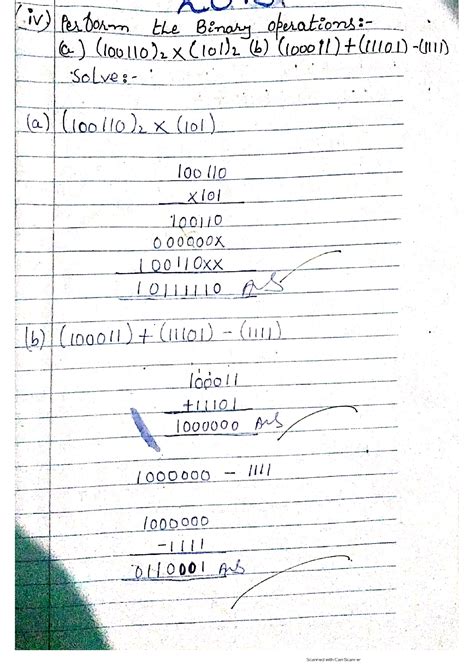 (iv) Perform the Binary operations:-
(a) (100110)₂ × (101)₂ (b) (100011) + (11101) - (1111)
Solve:-
(a) (100110)₂ × (101)
100110
×101
100110
000000×
100110××
10111110 Ans
(b) (100011) + (11101) - (1111)
100011
+11101
1000000 Ans
1000000 - 1111
1000000
-1111
0110001 Ans
Scanned with CamScanner